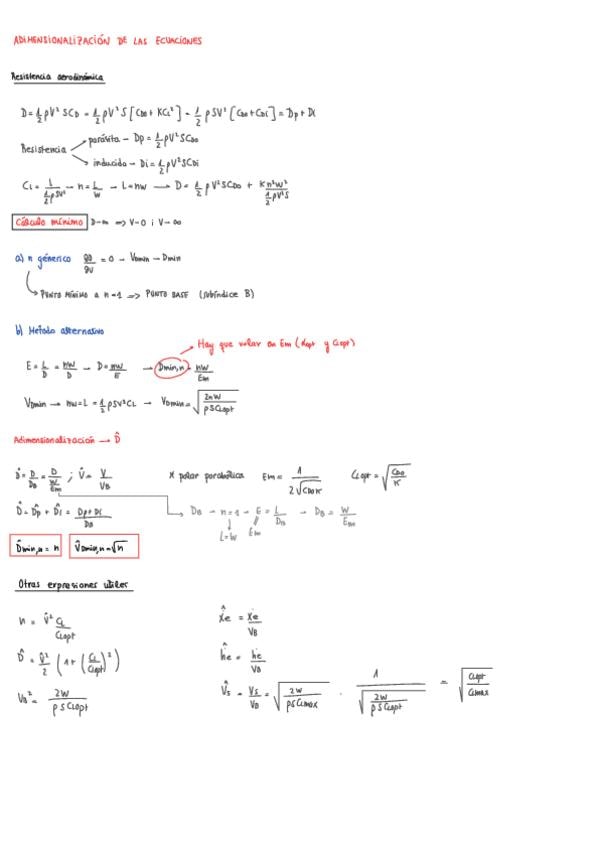 ADIMENSIONALIZACIÓN DE LAS ECUACIONES
Resistencia aerodinámica
D = 1/2 ρV² SC_D = 1/2 ρV² S [C_D0 + KC_L²] = 1/2 ρSV² [C_D0 + C_Di] = Dp + Di
Resistencia
parásita – Dp = 1/2 ρV² SC_D0
inducida – Di = 1/2 ρV² SC_Di
C_L = L / (1/2 ρSV²) – n = L/W – L = nW → D = 1/2 ρV² SC_D0 + K n² W² / (1/2 ρV² S)
Cálculo mínimo D – ∞ => V – 0 ; V – ∞
a) n génerico ∂D/∂V = 0 – V_Dmin – Dmin
PUNTO MÍNIMO A n = 1 => PUNTO BASE (subíndice B)
b) Método alternativo
Hay que volar en Em (αopt y CLopt)
E = L/D = nW/D – D = nW/E → Dmin,n = nW/Em
V_Dmin → nW = L = 1/2 ρSV² CL → V_Dmin = √(2nW / ρSC_Lopt)
Adimensionalización → D̂
D̂ = D/D_B = D/(W/Em) ; V̂ = V/V_B
x polar parabólica Em = 1 / (2√(C_D0 K)) C_Lopt = √(C_D0 / K)
D̂ = D̂p + D̂i = (Dp + Di)/D_B
D_B – n = 1 – E = L/D_B – D_B = W/Em
L = W Em
D̂min,n = n V̂Dmin,n = √n
Otras expresiones utiles
n = V̂² C_L/C_Lopt
ẋ̂e = ẋe/V_B
D̂ = V̂²/2 (1 + (C_L/C_Lopt)²)
ḣ̂e = ḣe/V_B
V_B² = 2W / ρSC_Lopt
V̂s = Vs/V_B = √(2W / ρSC_Lmax) · 1 / √(2W / ρSC_Lopt) = √(C_Lopt / C_Lmax)